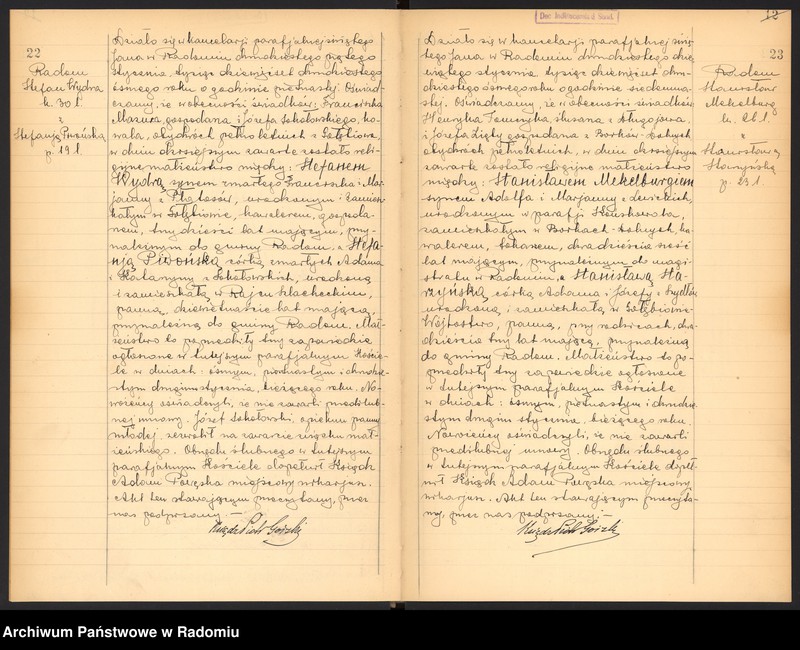 22
Radom
Stefan Wydra
k. 30 l.
z
Stefanja Piwońska
p. 19 l.
Działo się w kancelarji parafjalnej świętego
Jana w Radomiu dwudziestego piątego
stycznia tysiąc dziewięćset dwudziestego
ósmego roku o godzinie piętnastej. Oświad-
czamy, że w obecności świadków: Franciszka
Mazura, gospodarza i Józefa Sokołowskiego, ko-
wala, obydwóch pełnoletnich z Gołębiowa,
w dniu dzisiejszym zawarte zostało reli-
gijne małżeństwo między: Stefanem
Wydrą, synem zmarłego Franciszka i Mar-
janny z urodzonym i zamiesz-
kałym w Gołębiowie, kawalerem, gospoda-
rzem, trzydzieści lat mającym, przy-
należnym do gminy Radom, a Stefa-
nją Piwońską córką zmarłych Adama
i Katarzyny z Sokołowskich, urodzoną
i zamieszkałą w Rajcu Szlacheckim,
panną, dziewiętnaście lat mającą,
przynależną do gminy Radom. Mał-
żeństwo to poprzedziły trzy zapowiedzie
ogłoszone w tutejszym parafjalnym Koście-
le w dniach: ósmym, piętnastym i dwudzie-
stym drugim stycznia, bieżącego roku. No-
wożeńcy oświadczyli, że nie zawarli przedślub-
nej umowy. Józef Sokołowski, opiekun panny
młodej zezwolił na zawarcie związku mał-
żeńskiego. Obrzędu ślubnego w tutejszym
parafjalnym Kościele dopełnił Ksiądz
Adam miejscowy wikarjusz.
Akt ten stawającym przeczytany, przez
nas podpisany.—
Ksiądz Piotr Górski
12
23
Radom
Stanisław
Mekelburg
k. 26 l.
z
Stanisławą
Starzyńską
p. 23 l.
Działo się w kancelarji parafjalnej świę-
tego Jana w Radomiu dwudziestego dzie-
wiątego stycznia tysiąc dziewięćset dwu-
dziestego ósmego roku o godzinie siedemna-
stej. Oświadczamy, że w obecności świadków
Henryka ślusarza z Długojowa
i Józefa Zięty gospodarza z Borków
obydwóch pełnoletnich, w dniu dzisiejszym
zawarte zostało religijne małżeństwo
między: Stanisławem Mekelburgiem
synem Adolfa i Marjanny z
urodzonym w parafji
zamieszkałym w Borkach
kawalerem, tokarzem, dwadzieścia sześć
lat mającym, przynależnym do magi-
stratu w Radomiu, a Stanisławą Sta-
rzyńską córką Adama i Józefy z
urodzoną i zamieszkałą w Gołębiowie-
Wójtostwo, panną, przy rodzicach, dwa-
dzieścia trzy lat mającą, przynależną
do gminy Radom. Małżeństwo to po-
przedziły trzy zapowiedzie ogłoszone
w tutejszym parafjalnym Kościele
w dniach: ósmym, piętnastym i dwudzie-
stym drugim stycznia, bieżącego roku.
Nowożeńcy oświadczyli, że nie zawarli
przedślubnej umowy. Obrzędu ślubnego
w tutejszym parafjalnym Kościele dopeł-
nił Ksiądz Adam miejscowy
wikarjusz. Akt ten stawającym przeczyta-
ny, przez nas podpisany.—
Ksiądz Piotr Górski
Archiwum Państwowe w Radomiu